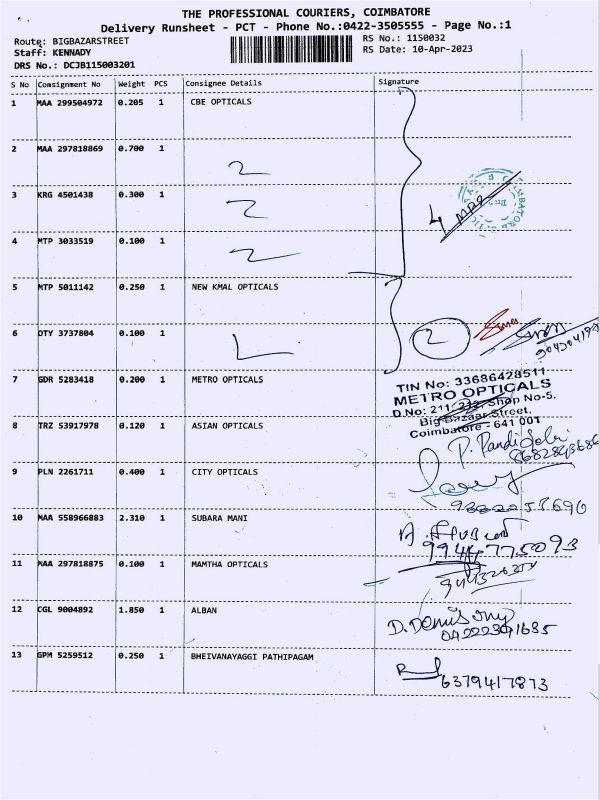 THE PROFESSIONAL COURIERS, COIMBATORE
Delivery Runsheet - PCT - Phone No.:0422-3505555 - Page No.:1
Route: BIGBAZARSTREET
RS No.: 1150032
Staff: KENNADY
RS Date: 10-Apr-2023
DRS No.: DCJB115003201
S No Consignment No Weight PCS Consignee Details Signature
1 MAA 299504972 0.205 1 CBE OPTICALS
2 MAA 297818869 0.700 1
3 KRG 4501438 0.300 1
4 MTP 3033519 0.100 1
5 MTP 5011142 0.250 1 NEW KMAL OPTICALS
6 DTY 3737804 0.100 1 2
7 GDR 5283418 0.200 1 METRO OPTICALS
TIN No: 33686428511
METRO OPTICALS
D.No: 211, 212, Shop No-5.
Big Bazaar Street,
Coimbatore - 641 001
8 TRZ 53917978 0.120 1 ASIAN OPTICALS
9 PLN 2261711 0.400 1 CITY OPTICALS
10 MAA 558966883 2.310 1 SUBARA MANI
9944775093
11 MAA 297818875 0.100 1 MAMTHA OPTICALS
12 CGL 9004892 1.850 1 ALBAN
13 GPM 5259512 0.250 1 BHEIVANAYAGGI PATHIPAGAM
6379417873